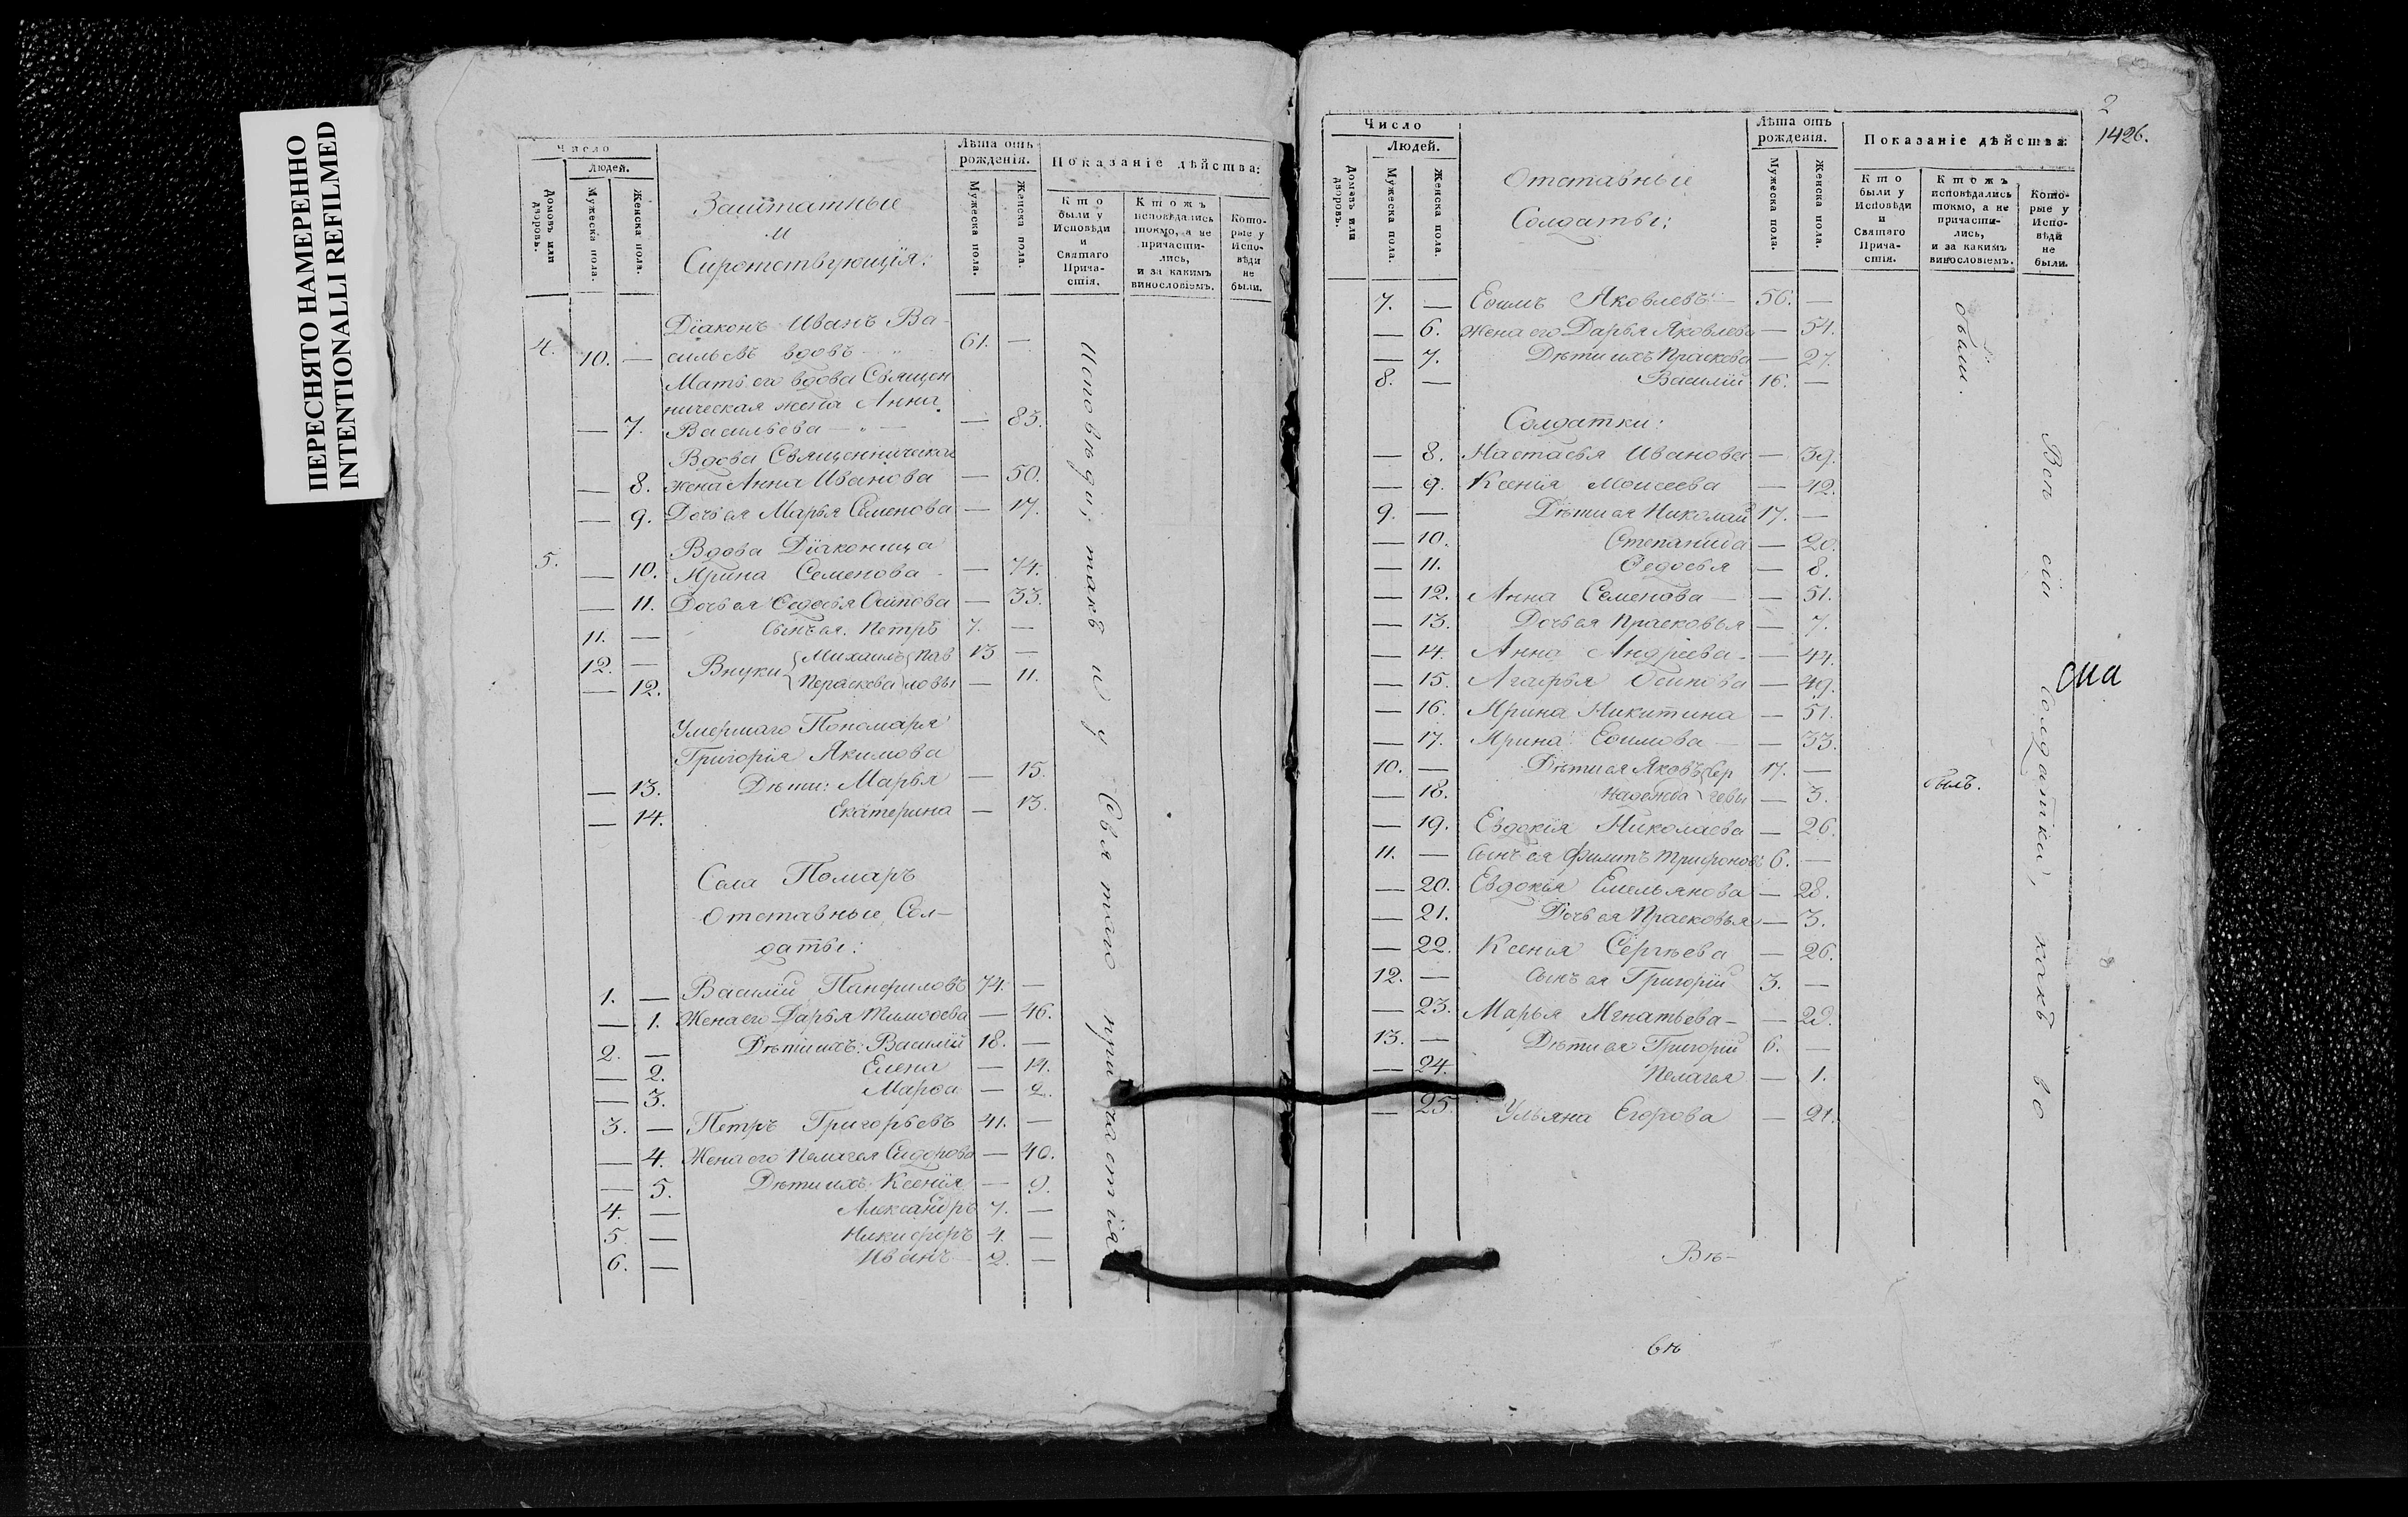 ПЕРЕСНЯТО НАМЕРЕННО
INTENTIONALLI REFILMED
Число
Людей.
Домовъ или дворовъ.
Мужеска пола.
Женска пола.
Заштатные
и
Сиротствующія:
Лѣта отъ рожденія.
Мужеска пола.
Женска пола.
Показаніе дѣйства:
Кто были у Исповѣди и Святаго Прича-стія.
Ктожъ исповѣдались токмо, а не причасти-лись, и за какимъ винословіемъ.
Кото-рые у Испо-вѣди не были.
Діаконъ Иванъ Ва-
4. 10. — сильевъ вдовъ — 61. —
Мать его вдова Священ
ническая жена Анна
— 7. Васильева — — 85.
Вдова Священническая
— 8. жена Анна Иванова — 50.
— 9. Дочь ея Марья Семенова — 17.
Вдова Діаконица
5. — 10. Ирина Семенова — 74.
— 11. Дочь ея Ѳедосья Осипова — 33.
11. — Сынъ ея Петръ 7. —
12. — Внуки Михаилъ Пав 13 —
— 12. Параскева ловы — 11.
Умершаго Пономаря
Григорія Якимова
— 13. Дѣти: Марья — 15.
— 14. Екатерина — 13.
Исповѣди, такъ и у Святаго причастія
Села Помаръ
Отставные Сол-
даты:
1. — Василій Панфиловъ 74. —
— 1. Жена его Дарья Тимоѳева — 46.
2. — Дѣти ихъ: Василій 18. —
— 2. Елена — 14.
— 3. Марѳа — 2.
3. — Петръ Григорьевъ 41. —
— 4. Жена его Пелагея Сидорова — 40.
— 5. Дѣти ихъ Ксенія — 9.
4. — Александръ 7. —
5. — Никифоръ 4. —
6. — Иванъ 2. —
2
1426.
Число
Людей.
Домовъ или дворовъ.
Мужеска пола.
Женска пола.
Отставные
Солдаты:
Лѣта отъ рожденія.
Мужеска пола.
Женска пола.
Показаніе дѣйства:
Кто были у Исповѣди и Святаго Прича-стія.
Ктожъ исповѣдались токмо, а не причасти-лись, и за какимъ винословіемъ.
Кото-рые у Испо-вѣди не были.
7. — Еѳимъ Яковлевъ 56. —
— 6. Жена его Дарья Яковлева — 54.
— 7. Дѣти ихъ Праскова — 27.
8. — Василій 16. —
Солдатки:
— 8. Настасья Иванова — 39.
— 9. Ксенія Моисеева — 42.
9. — Дѣти ея Николай 17. —
— 10. Степанида — 20.
— 11. Ѳедосья — 8.
— 12. Анна Семенова — 51.
— 13. Дочь ея Прасковья — 7.
— 14. Анна Андреева — 44.
— 15. Агафья Осипова — 49.
— 16. Ирина Никитина — 51.
— 17. Ирина Еѳимова — 33.
10. — Дѣти ея Яковъ Сер 17. —
— 18. Надежда геевы — 3.
былъ.
— 19. Евдокія Николаева — 26.
11. — Сынъ ея Филипъ Трифоновъ 6. —
— 20. Евдокія Емельянова — 28.
— 21. Дочь ея Прасковья — 3.
— 22. Ксенія Сергѣева — 26.
12. — Сынъ ея Григорій 3. —
— 23. Марья Игнатьева — 28.
13. — Дѣти ея Григорій 6. —
— 24. Пелагея — 1.
— 25. Ульяна Егорова — 21.
Всѣ сіи солдатки, какъ во
Вѣ-